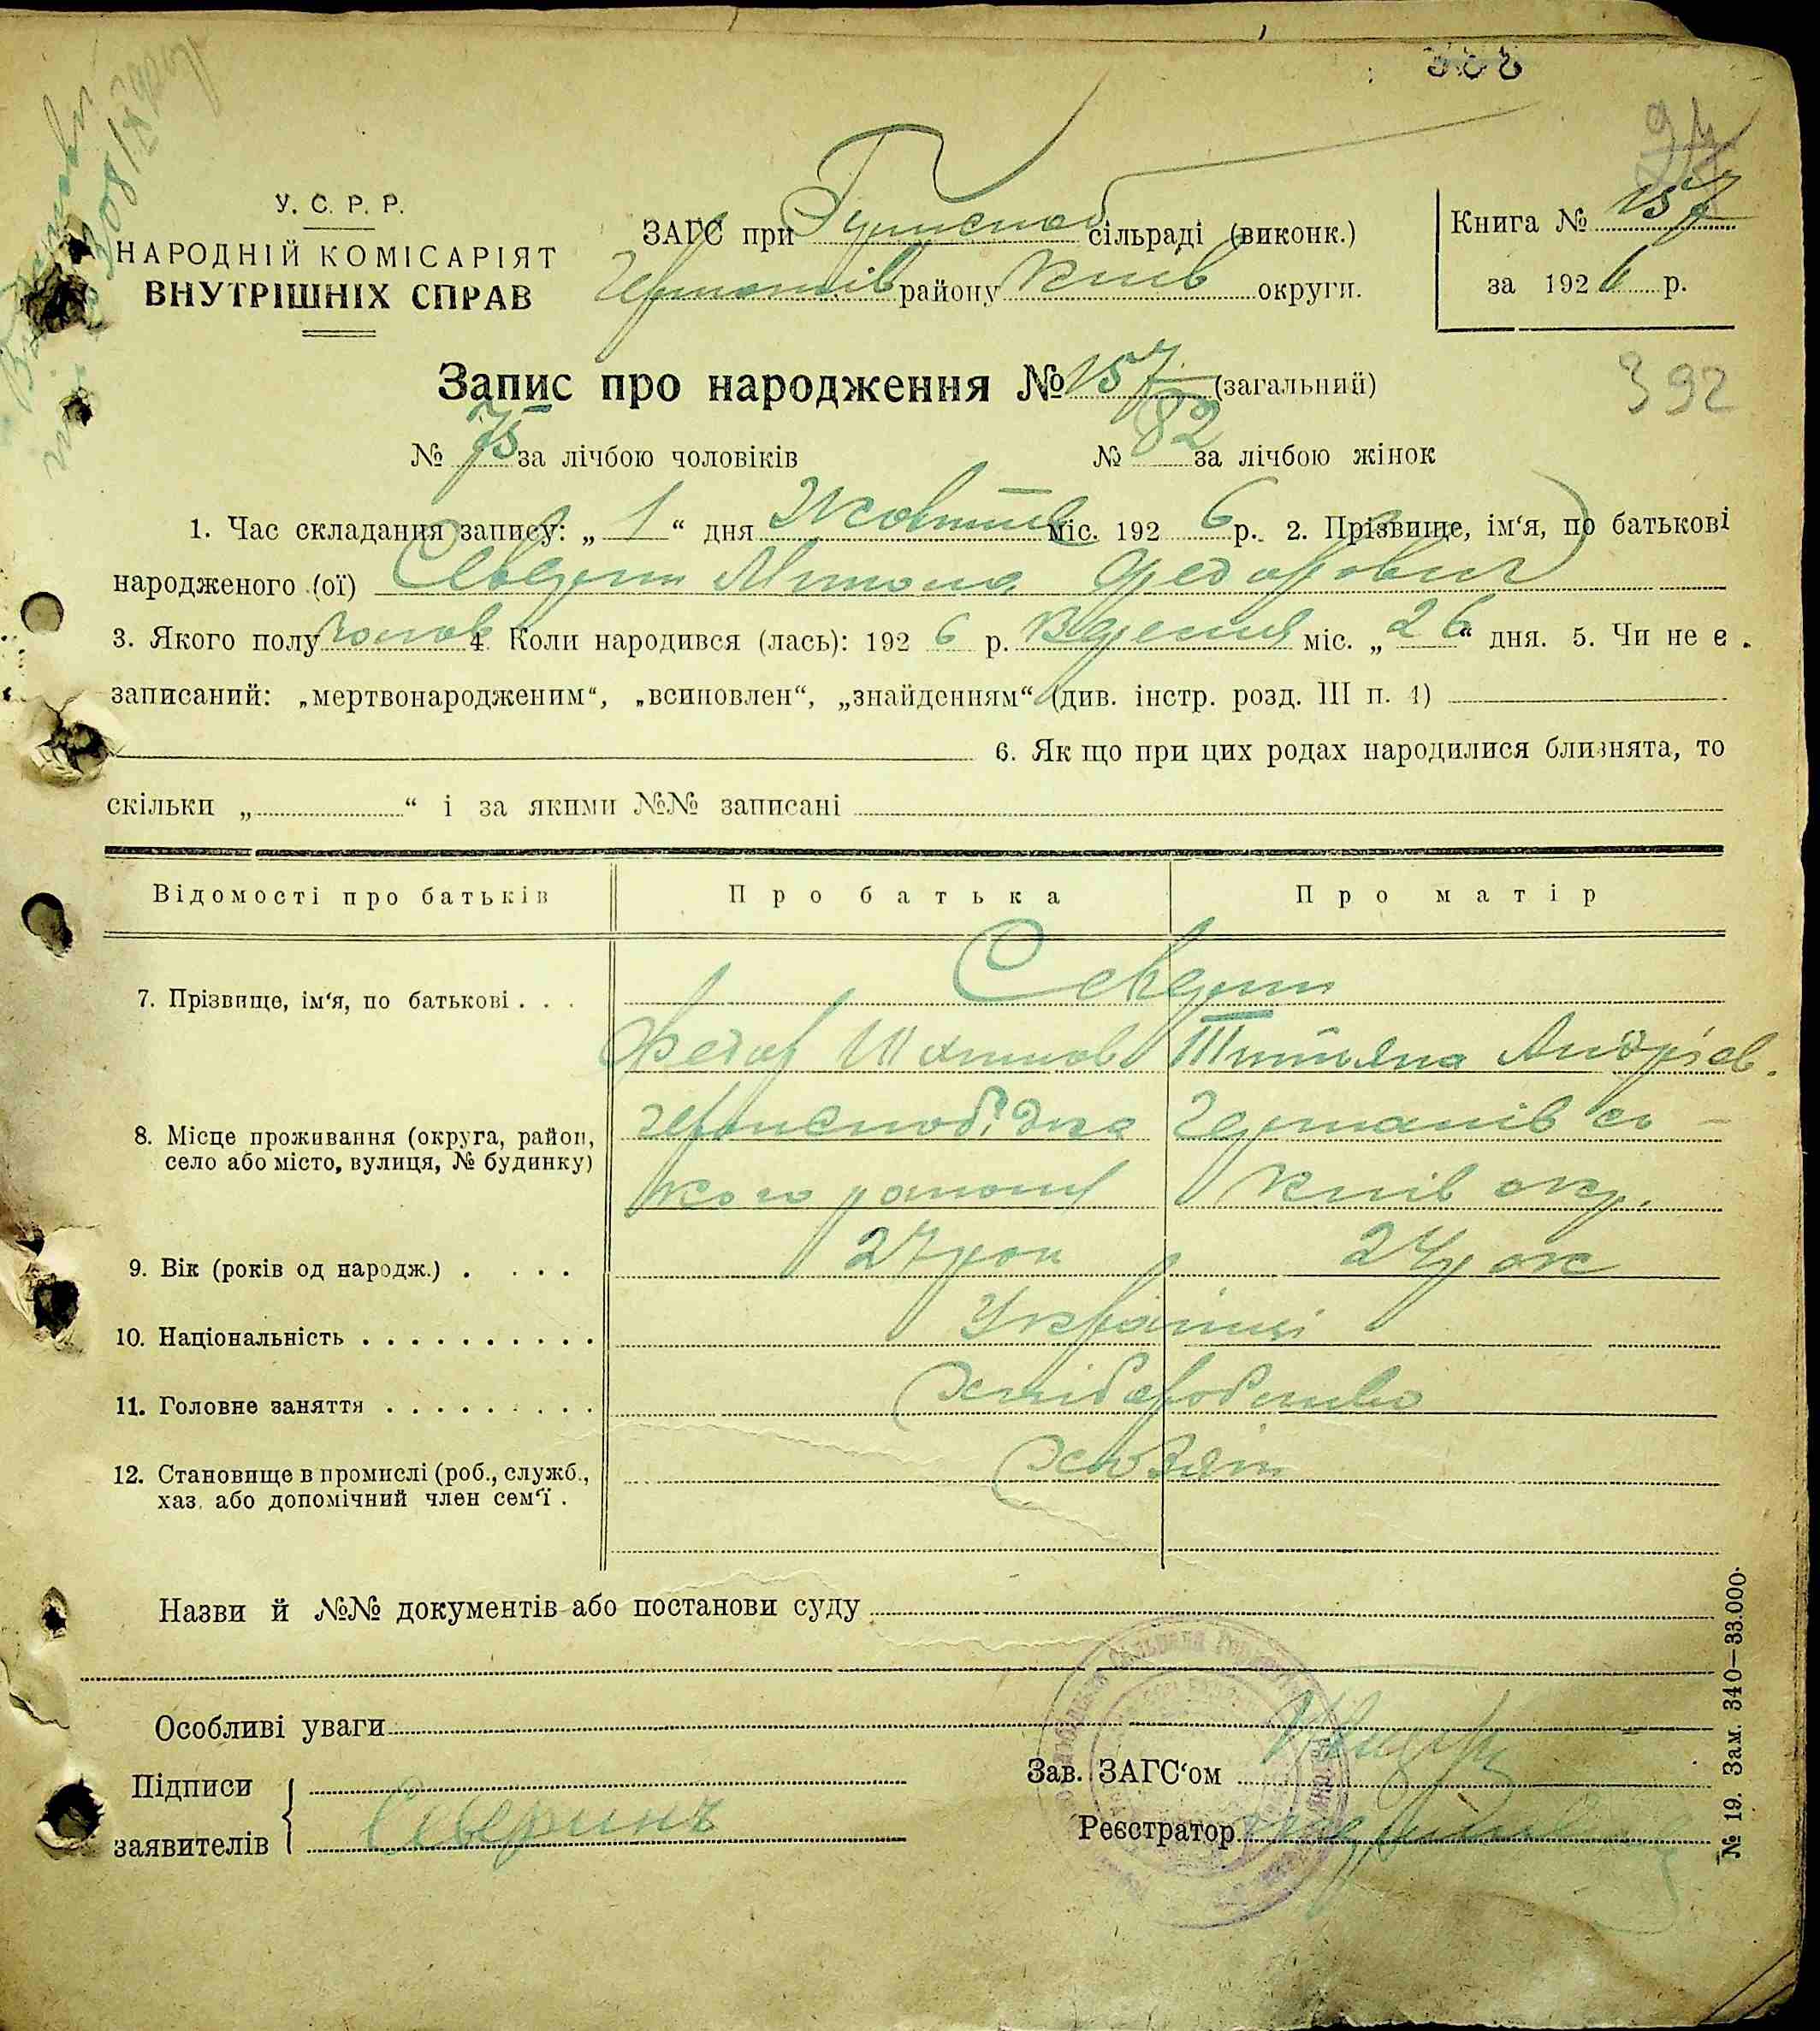 У. С. Р. Р.
НАРОДНІЙ КОМІСАРІЯТ
ВНУТРІШНІХ СПРАВ
ЗАГС при сільраді (виконк.)
району Київ округи.
Книга № 157
за 1926 р.
392
Запис про народження № 157 (загальний)
№ 75 за лічбою чоловіків № 82 за лічбою жінок
1. Час складання запису: „ 1 “ дня Жовтня міс. 1926 р. 2. Прізвище, ім‘я, по батькові
народженого (ої) Северин Микола Федорович
3. Якого полу чолов 4. Коли народився (лась): 1926 р. Вересня міс. „ 26 “ дня. 5. Чи не є
записаний: „мертвонародженим“, „всиновлен“, „знайденням“ (див. інстр. розд. III п. 4)
6. Як що при цих родах народилися близнята, то
скільки „ “ і за якими №№ записані
Відомості про батьків Про батька Про матір
7. Прізвище, ім‘я, по батькові . . . Северин
Федор Титяна Андріев.
8. Місце проживання (округа, район,
село або місто, вулиця, № будинку)
кого району Київ окр.
9. Вік (років од народж.) . . . . 27 рок 24 рок
10. Національність . . . . . . . . . . Українці
11. Головне заняття . . . . . . . . . Хліборобство
12. Становище в промислі (роб., служб.,
хаз. або допомічний член сем‘ї . Хозяїн
Назви й №№ документів або постанови суду
Особливі уваги
Підписи
заявителів Северинъ
Зав. ЗАГС‘ом
Реєстратор
№ 19. Зам. 340—33.000.